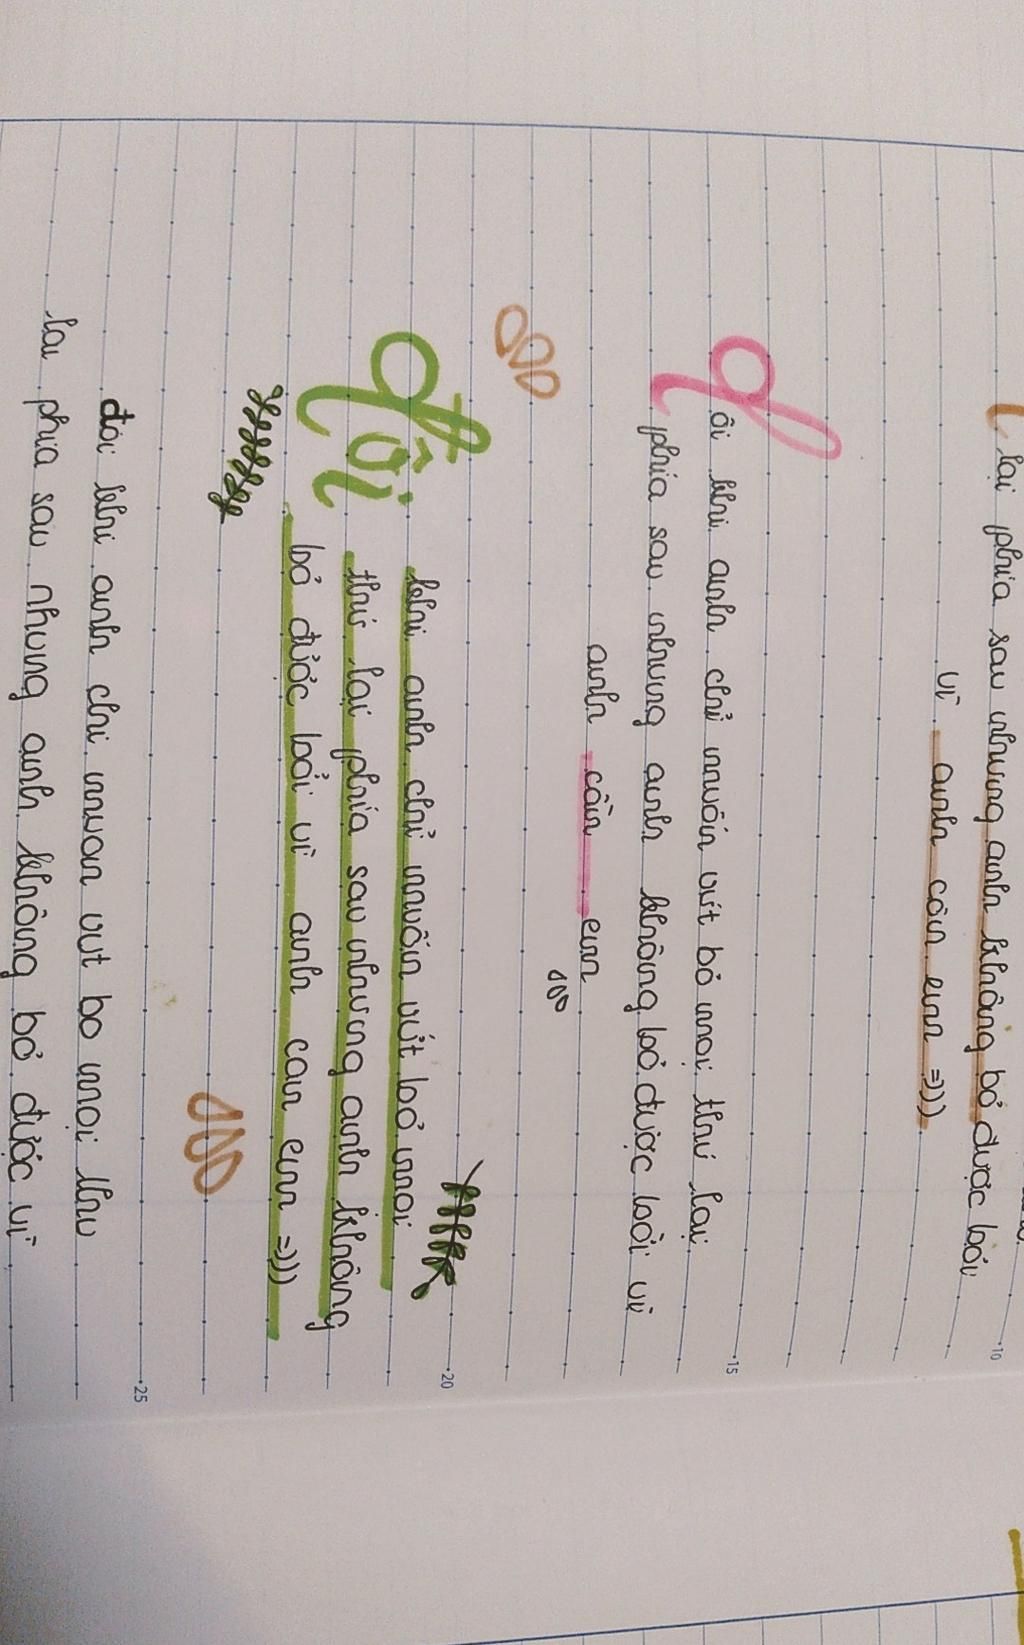 lại phía sau nhưng anh không bỏ được bởi
vì anh cần em =)))
đôi khi anh chỉ muốn vứt bỏ mọi thứ lại
phía sau nhưng anh không bỏ được bởi vì
anh cần em
Đôi khi anh chỉ muốn vứt bỏ mọi
thứ lại phía sau nhưng anh không
bỏ được bởi vì anh can em =)))
đôi khi anh chi muon vut bo mọi thu
lai phia sau nhung anh không bỏ được vì
10
15
20
25